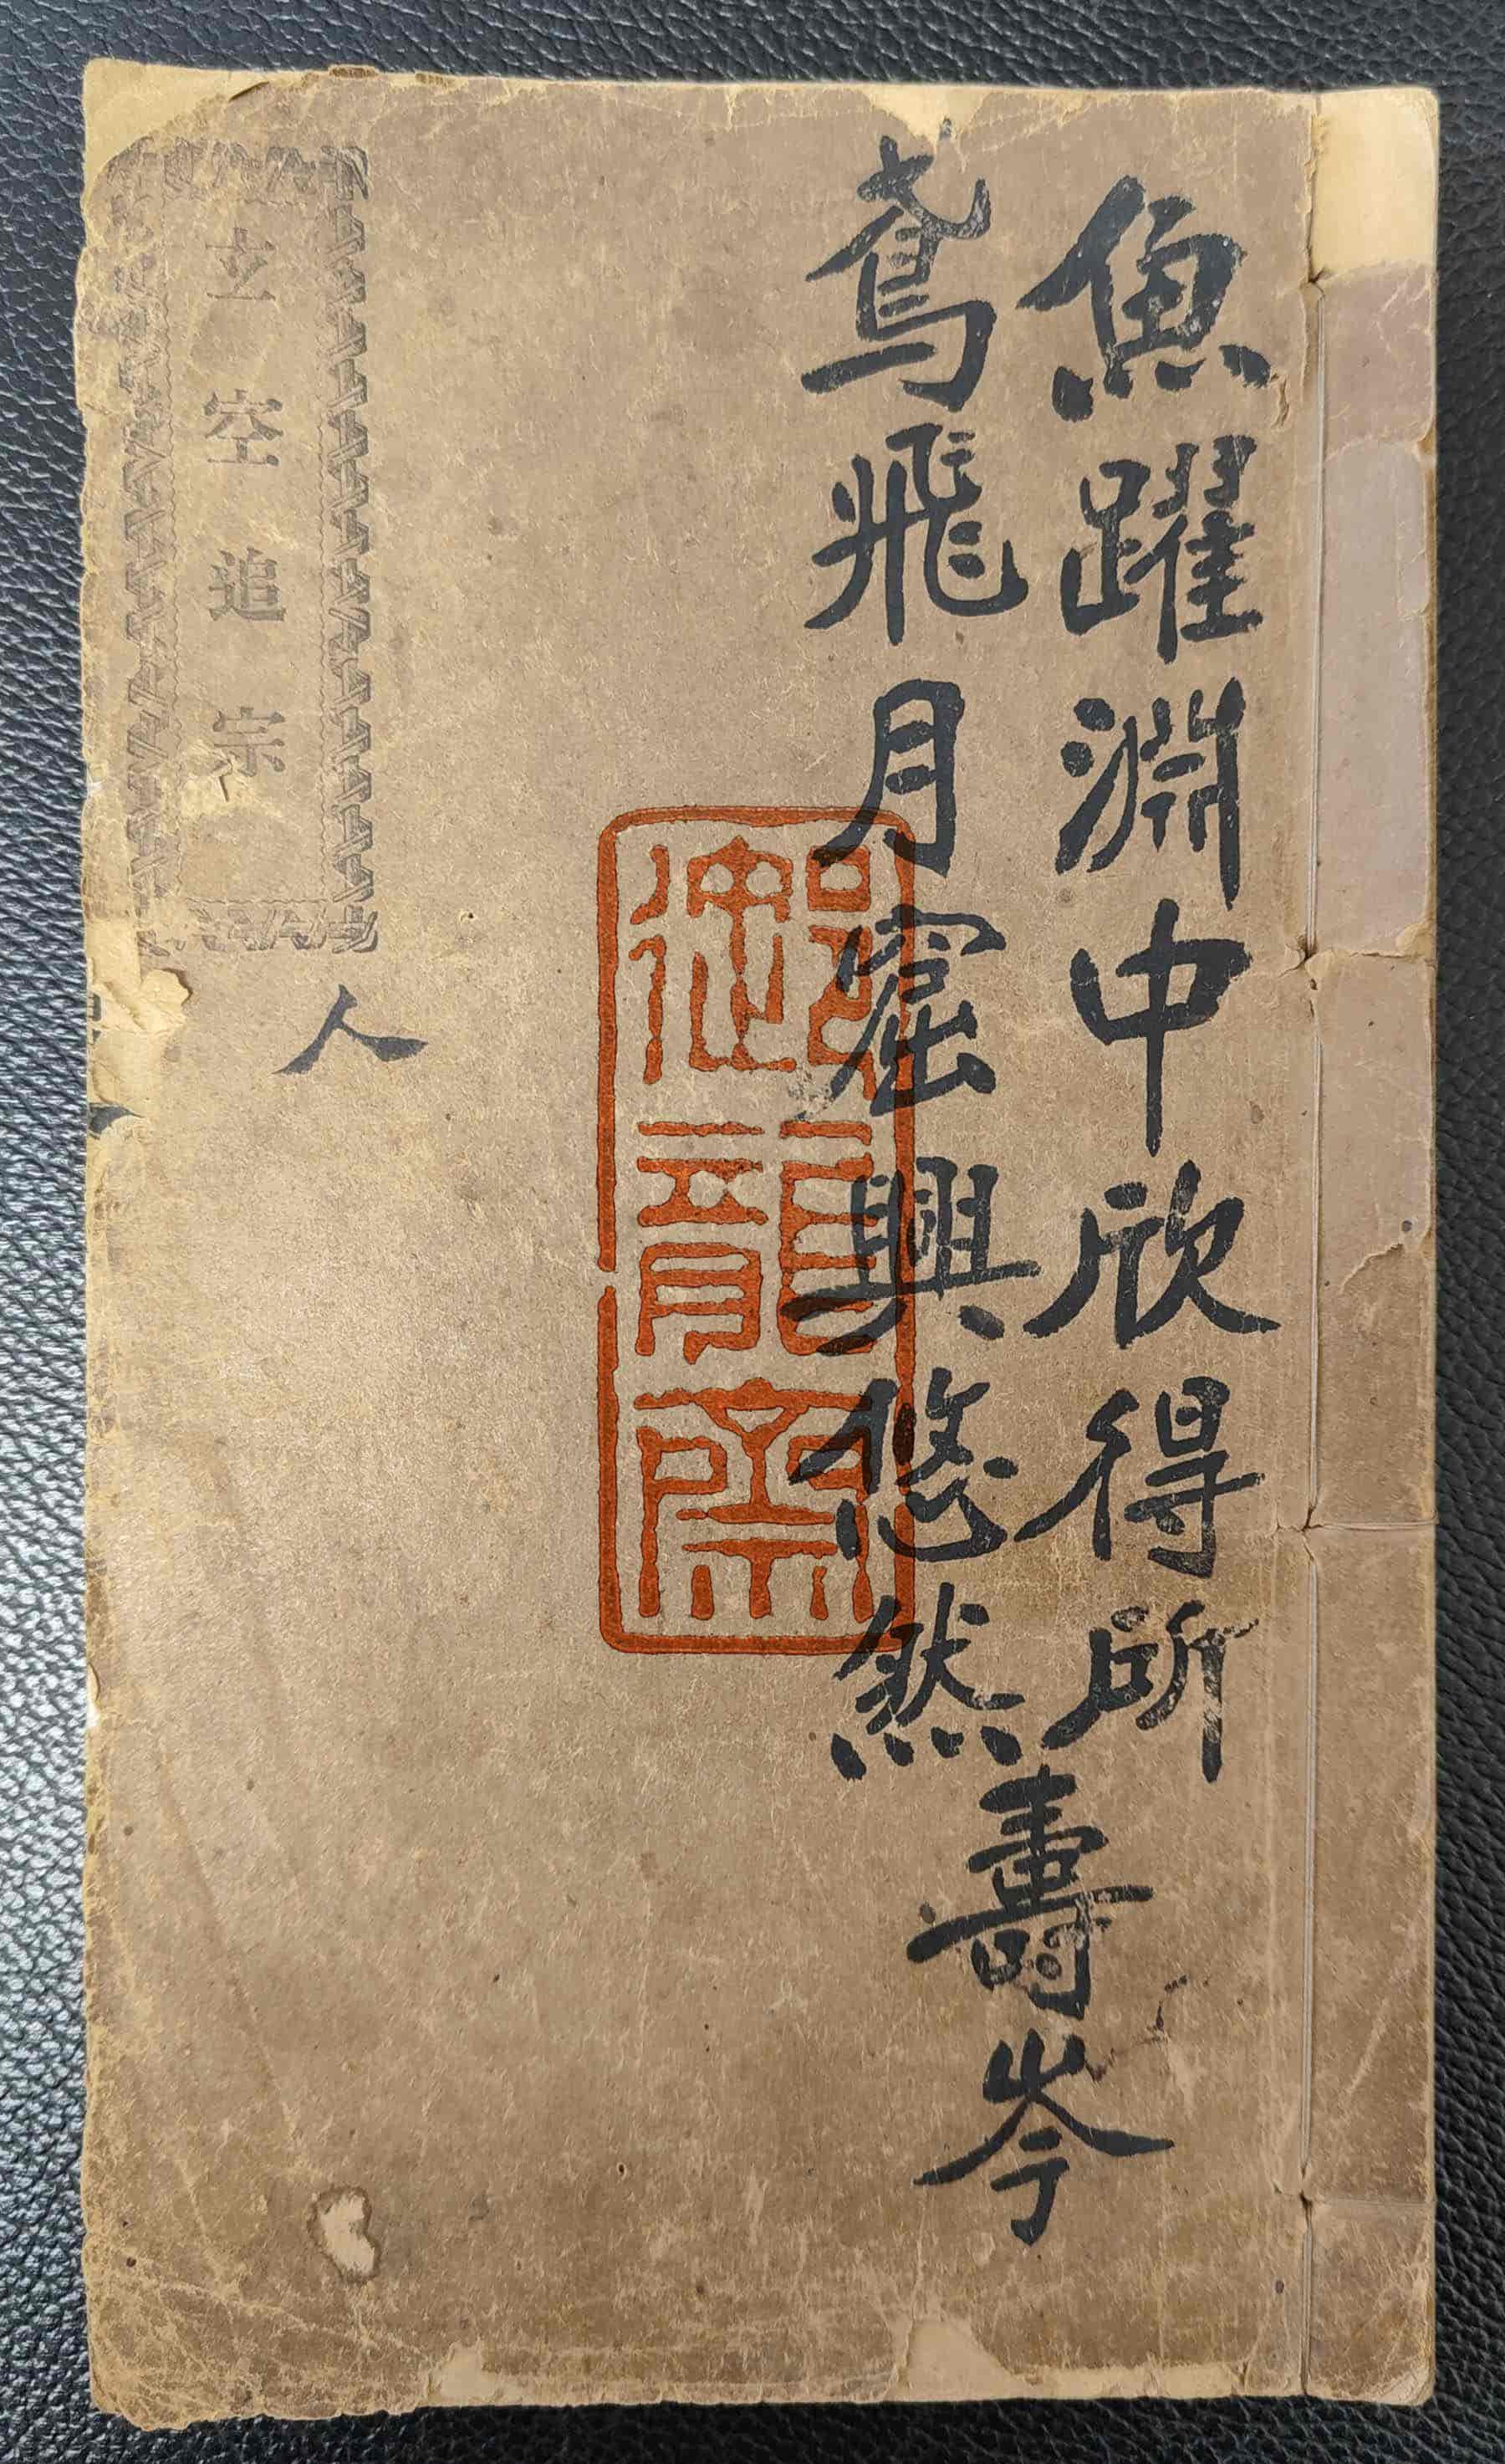 魚躍淵中欣得所
鳶飛月窟興悠然
壽岑
人
玄空追宗
御龍齋